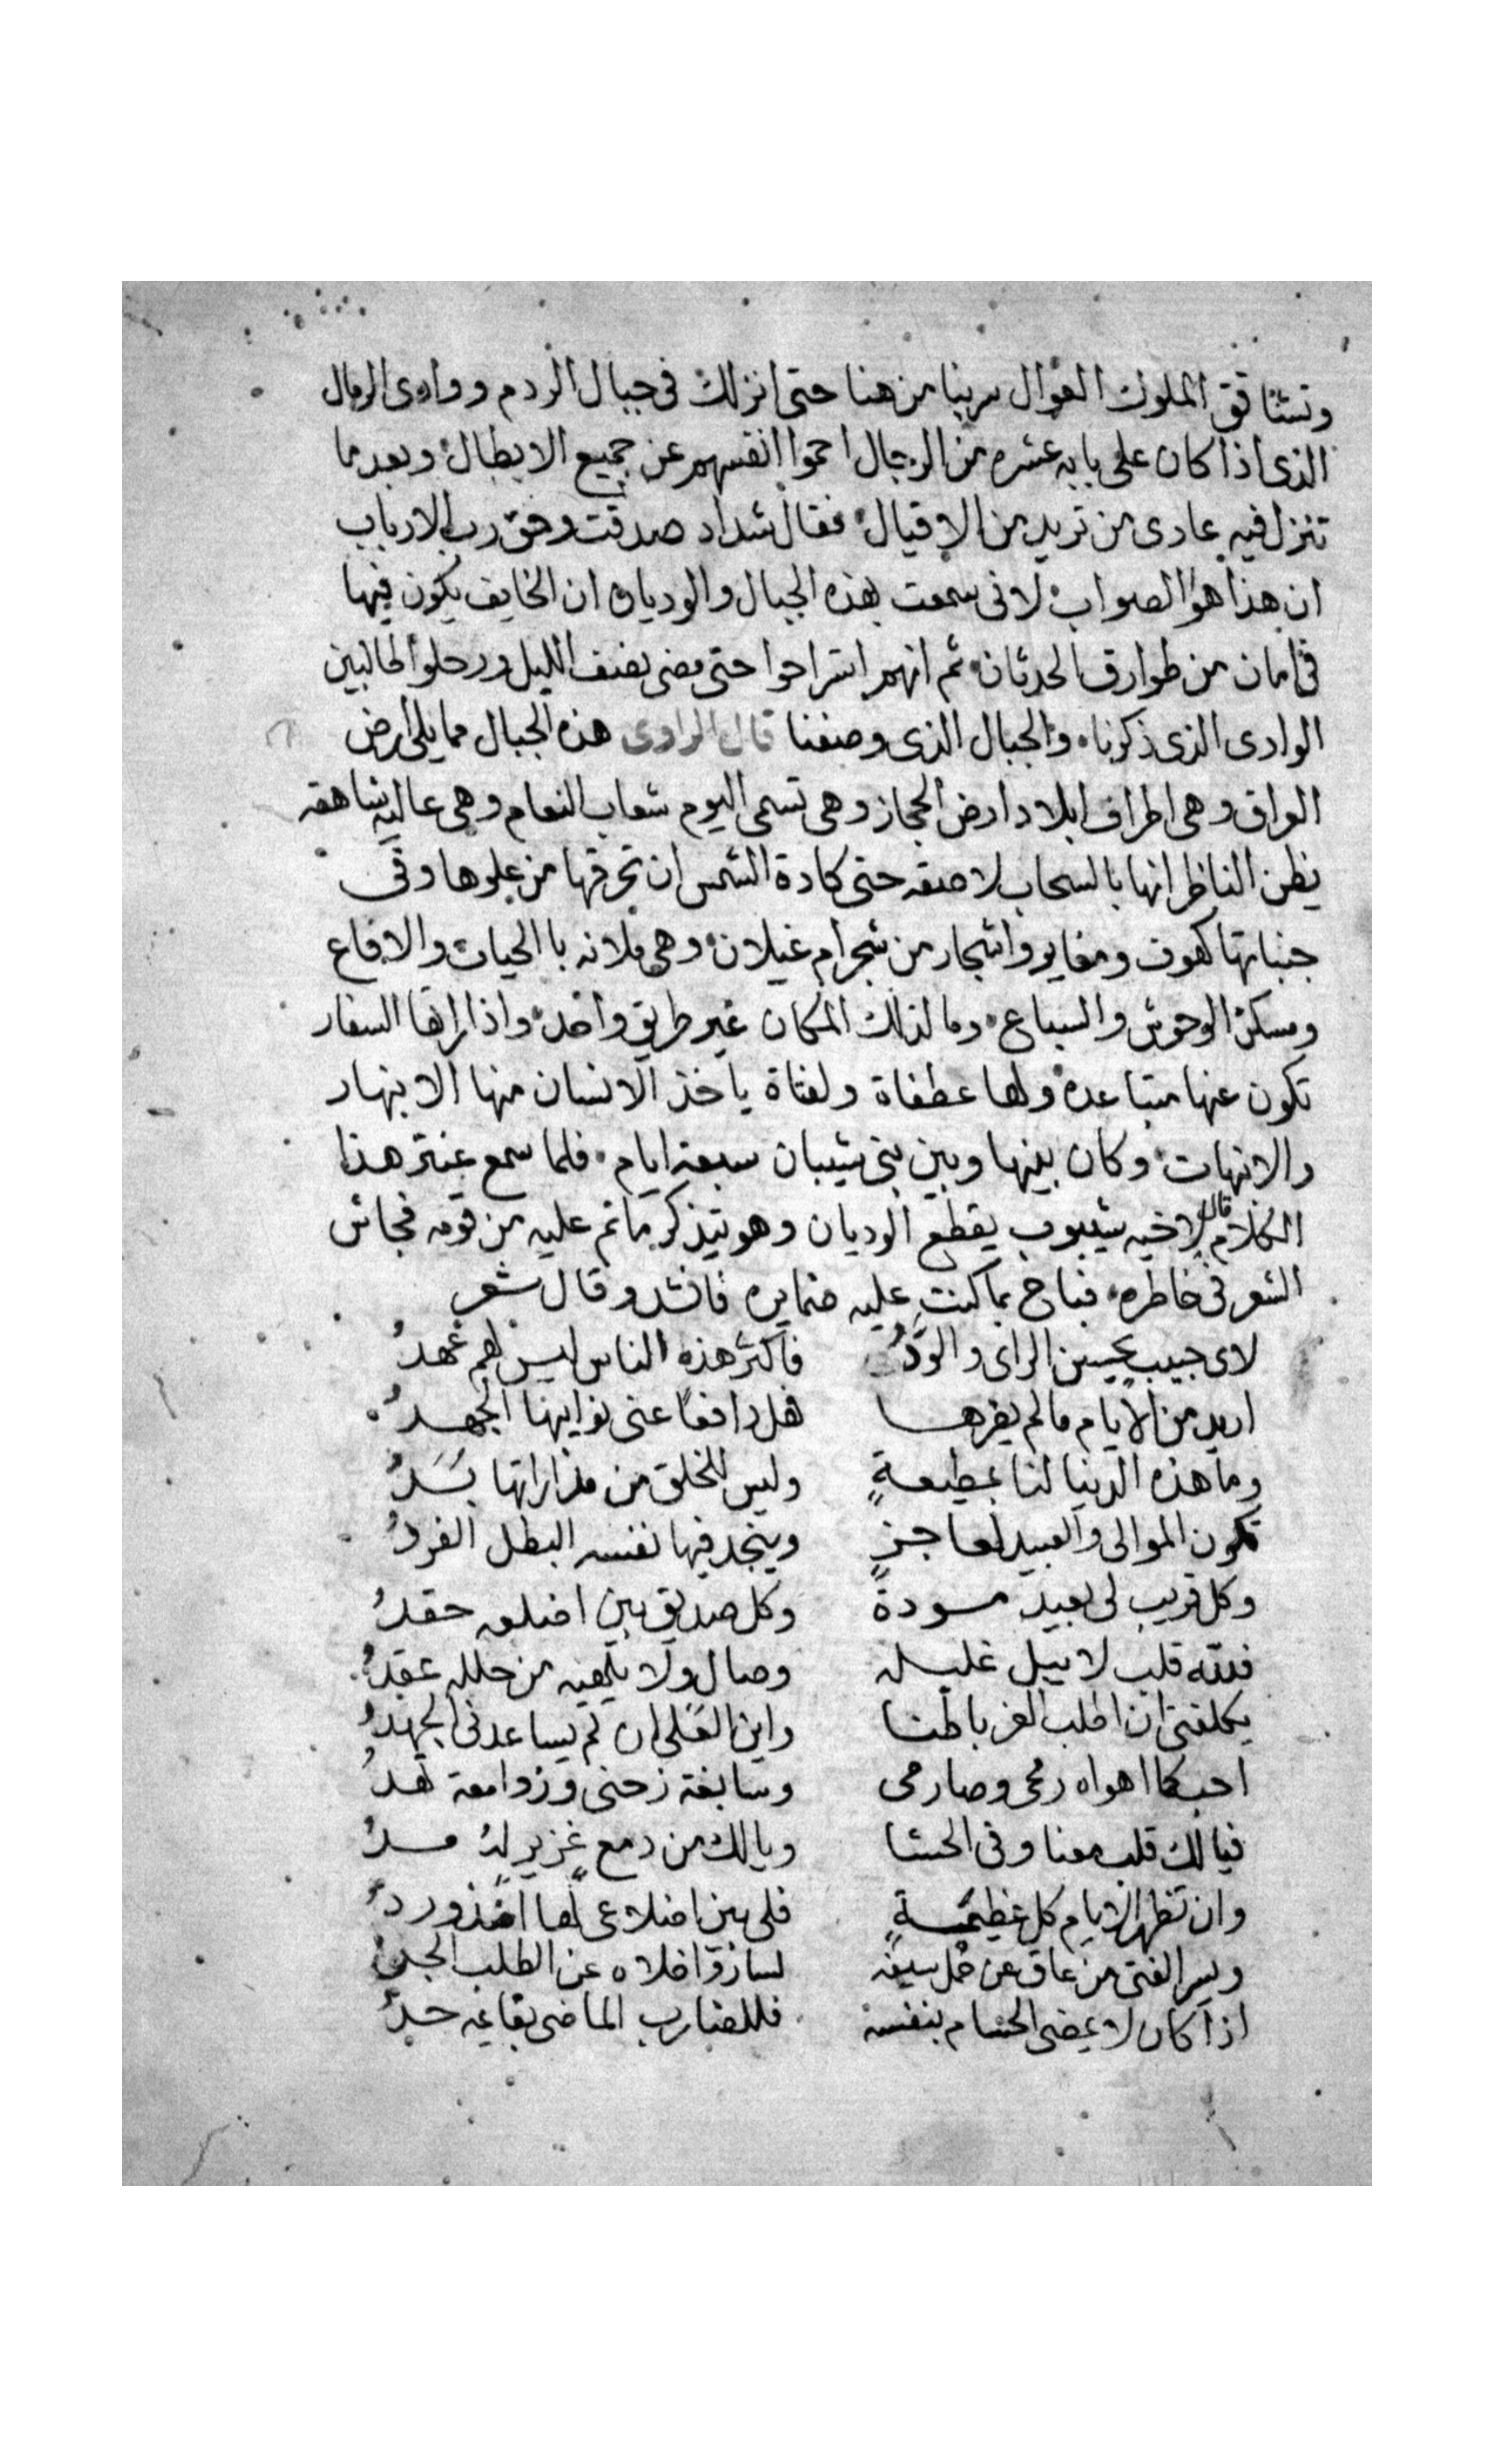 وتشتاقق الملوك العوال سر بنا من هنا حتى انزلك في جبال الردم ووادى الرمال
الذى اذا كان على بابه عشره من الرجال احموا انفسهم عن جميع الابطال وبعدما
تنزل فيه عادى من تريد من الاقيال فقال شداد صدقت وحق رب الارباب
ان هذا هو الصواب لانى سمعت بهذه الجبال والوديان ان الخايف يكون فيها
في امان من طوارق الحدثان ثم انهم استراحوا حتى مضى نصف الليل ورحلوا طالبين
الوادى الذى ذكرنا والجبال الذى وصفنا قال الراوى هذه الجبال مما يلى ارض
العراق وهى اطراف ابلاد ارض الحجاز وهى تسمى اليوم شعاب النعام وهى عاليه شاهقه
يظن الناظر انها بالسحاب لاصقه حتى كادة الشمس ان تحرقها من علوها وفى
جنباتها كهوف ومغاير واشجار من شجر ام غيلان وهى ملانه باالحيات والافاع
ومسكن الوحوش والسباع وما لذلك المكان غير طريق واحد واذا راها السفار
تكون عنها متباعده ولها عطفاة ولفتاة ياخذ الانسان منها الانبهار
والانبهات وكان بينها وبين بنى شيبان سبعة ايام فلما سمع عنتر هذا
الكلام قال لاخيه شيبوب يقطع الوديان وهو يتذكر ما تم عليه من قومه فجاش
الشعر فى خاطره فباح بما كنت عليه ضمايره فانشد وقال شعر
لاى حبيب يحسن الراى والودُّ فاكثر هذه الناس ليس لهم عهدُ
اريد من الايام ما لم يضرها فهل دافعًا عنى نوايبها الجهدُ
وما هذه الدنيا لنا بمطيعةٍ وليس للخلق من مداراتها بُدُّ
تكون الموالى والعبيد لعاجزٍ ويخدم فيها نفسه البطل الفردُ
وكل قريب لى بعيد مودةً وكل صديق بين اضلعه حقدُ
فلله قلب لا يبل غليله وصال ولا يلهيه من حلله عقدُ
يكلفنى ان اطلب العز بالقنا واين العلى ان لم يساعدنى الجهدُ
احب كما اهواه رمحى وصارمى وسابغة زحفى وزوامعة نهدُ
فيالك قلب معنا وفى الحشا ويالك من دمع غزيرٍ له مدُ
وان تظهر الايام كل عظيمةٍ فلى بين اضلاعى لها اسد وردُ
وليس الفتى من عاق عن حمل سيفه
اذا كان لا يمضى الحسام بنفسه فللضارب الماضى بقايمه حدُّ